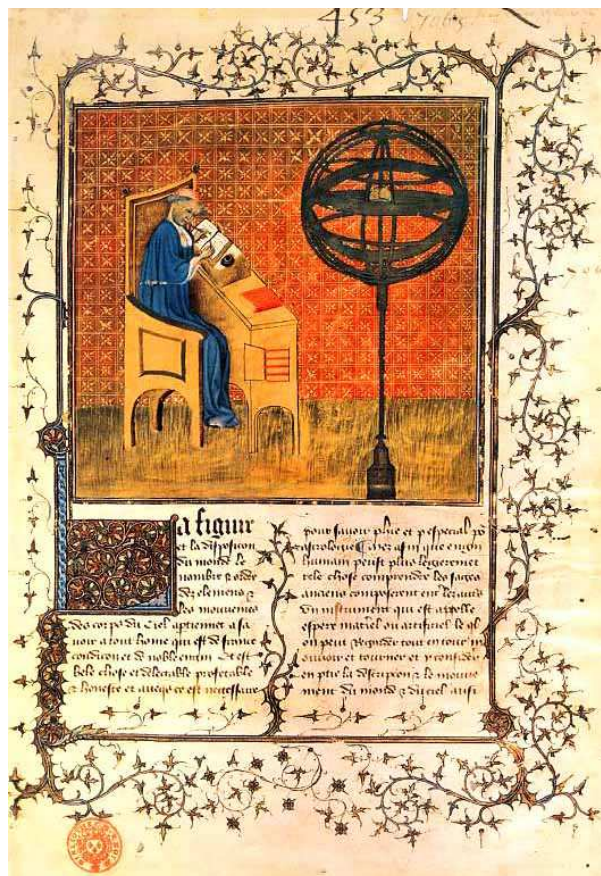 453
7065
a figure
et la disposicion
du monde le
nombre & ordre
des elemens &
les mouvemens
des corps du ciel aptiennent a sa
voir a tout home qui est de france
condicion et de noble engin Et est
bele chose et delectable profetable
& honeste et avecq ce est necessaire
pour savoir phie et p especial po
astrologie Car afin que engin
humain peust plus legierement
tele chose comprendre les sages
anciens composerent en leurs
un instrument qui est appelle
espere materiel ou artificiel le ql
on peut regarder tout entour
mouvoir et tourner et y considerer
en ptie la descripcion & le mouve
ment du monde & du ciel aussi